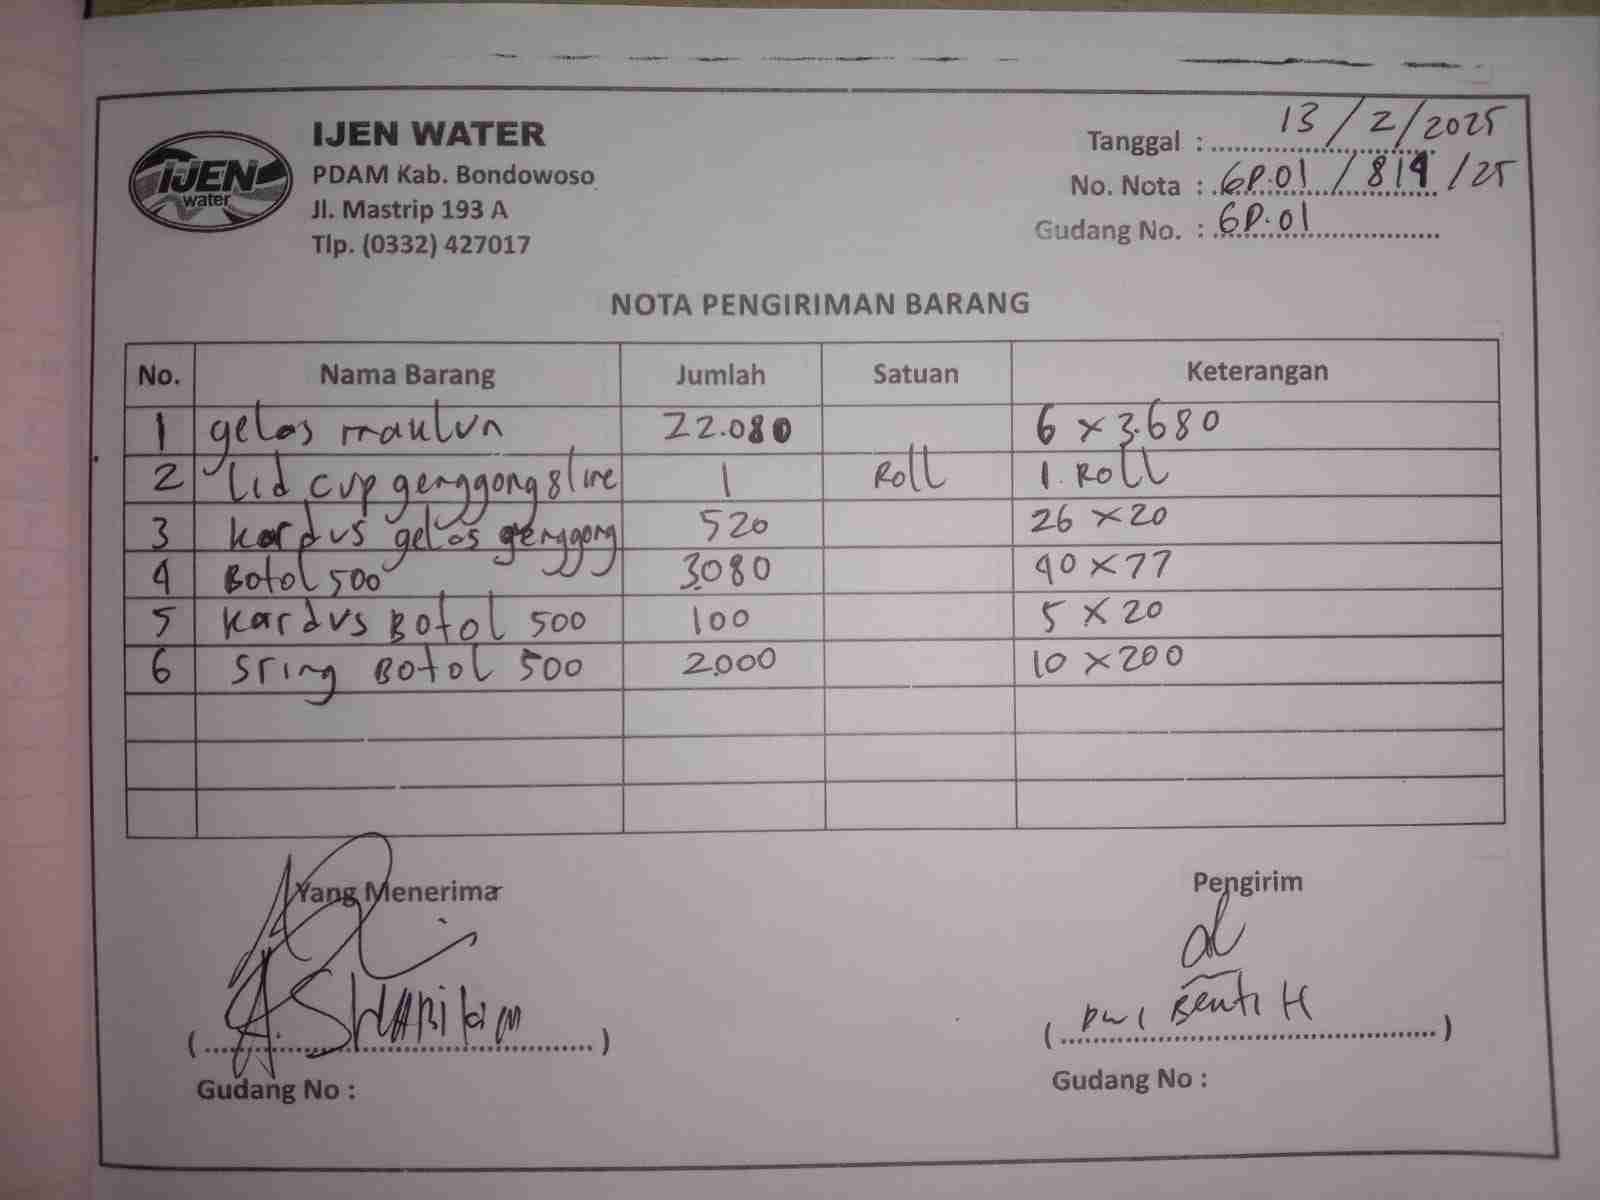 IJEN WATER
PDAM Kab. Bondowoso
Jl. Mastrip 193 A
Tlp. (0332) 427017
IJEN
water
Tanggal : 13 / 2 / 2025
No. Nota : GP.01 / 814 / 25
Gudang No. : GP.01
NOTA PENGIRIMAN BARANG
No. Nama Barang Jumlah Satuan Keterangan
1 gelas maulun 22.080 6 x 3.680
2 Lid cup genggong 8 line 1 Roll 1. Roll
3 kardus gelas genggong 520 26 x 20
4 Botol 500 3.080 40 x 77
5 kardus Botol 500 100 5 x 20
6 Sring Botol 500 2.000 10 x 200
Yang Menerima
Pengirim
( A. )
( Dwi H )
Gudang No :
Gudang No :